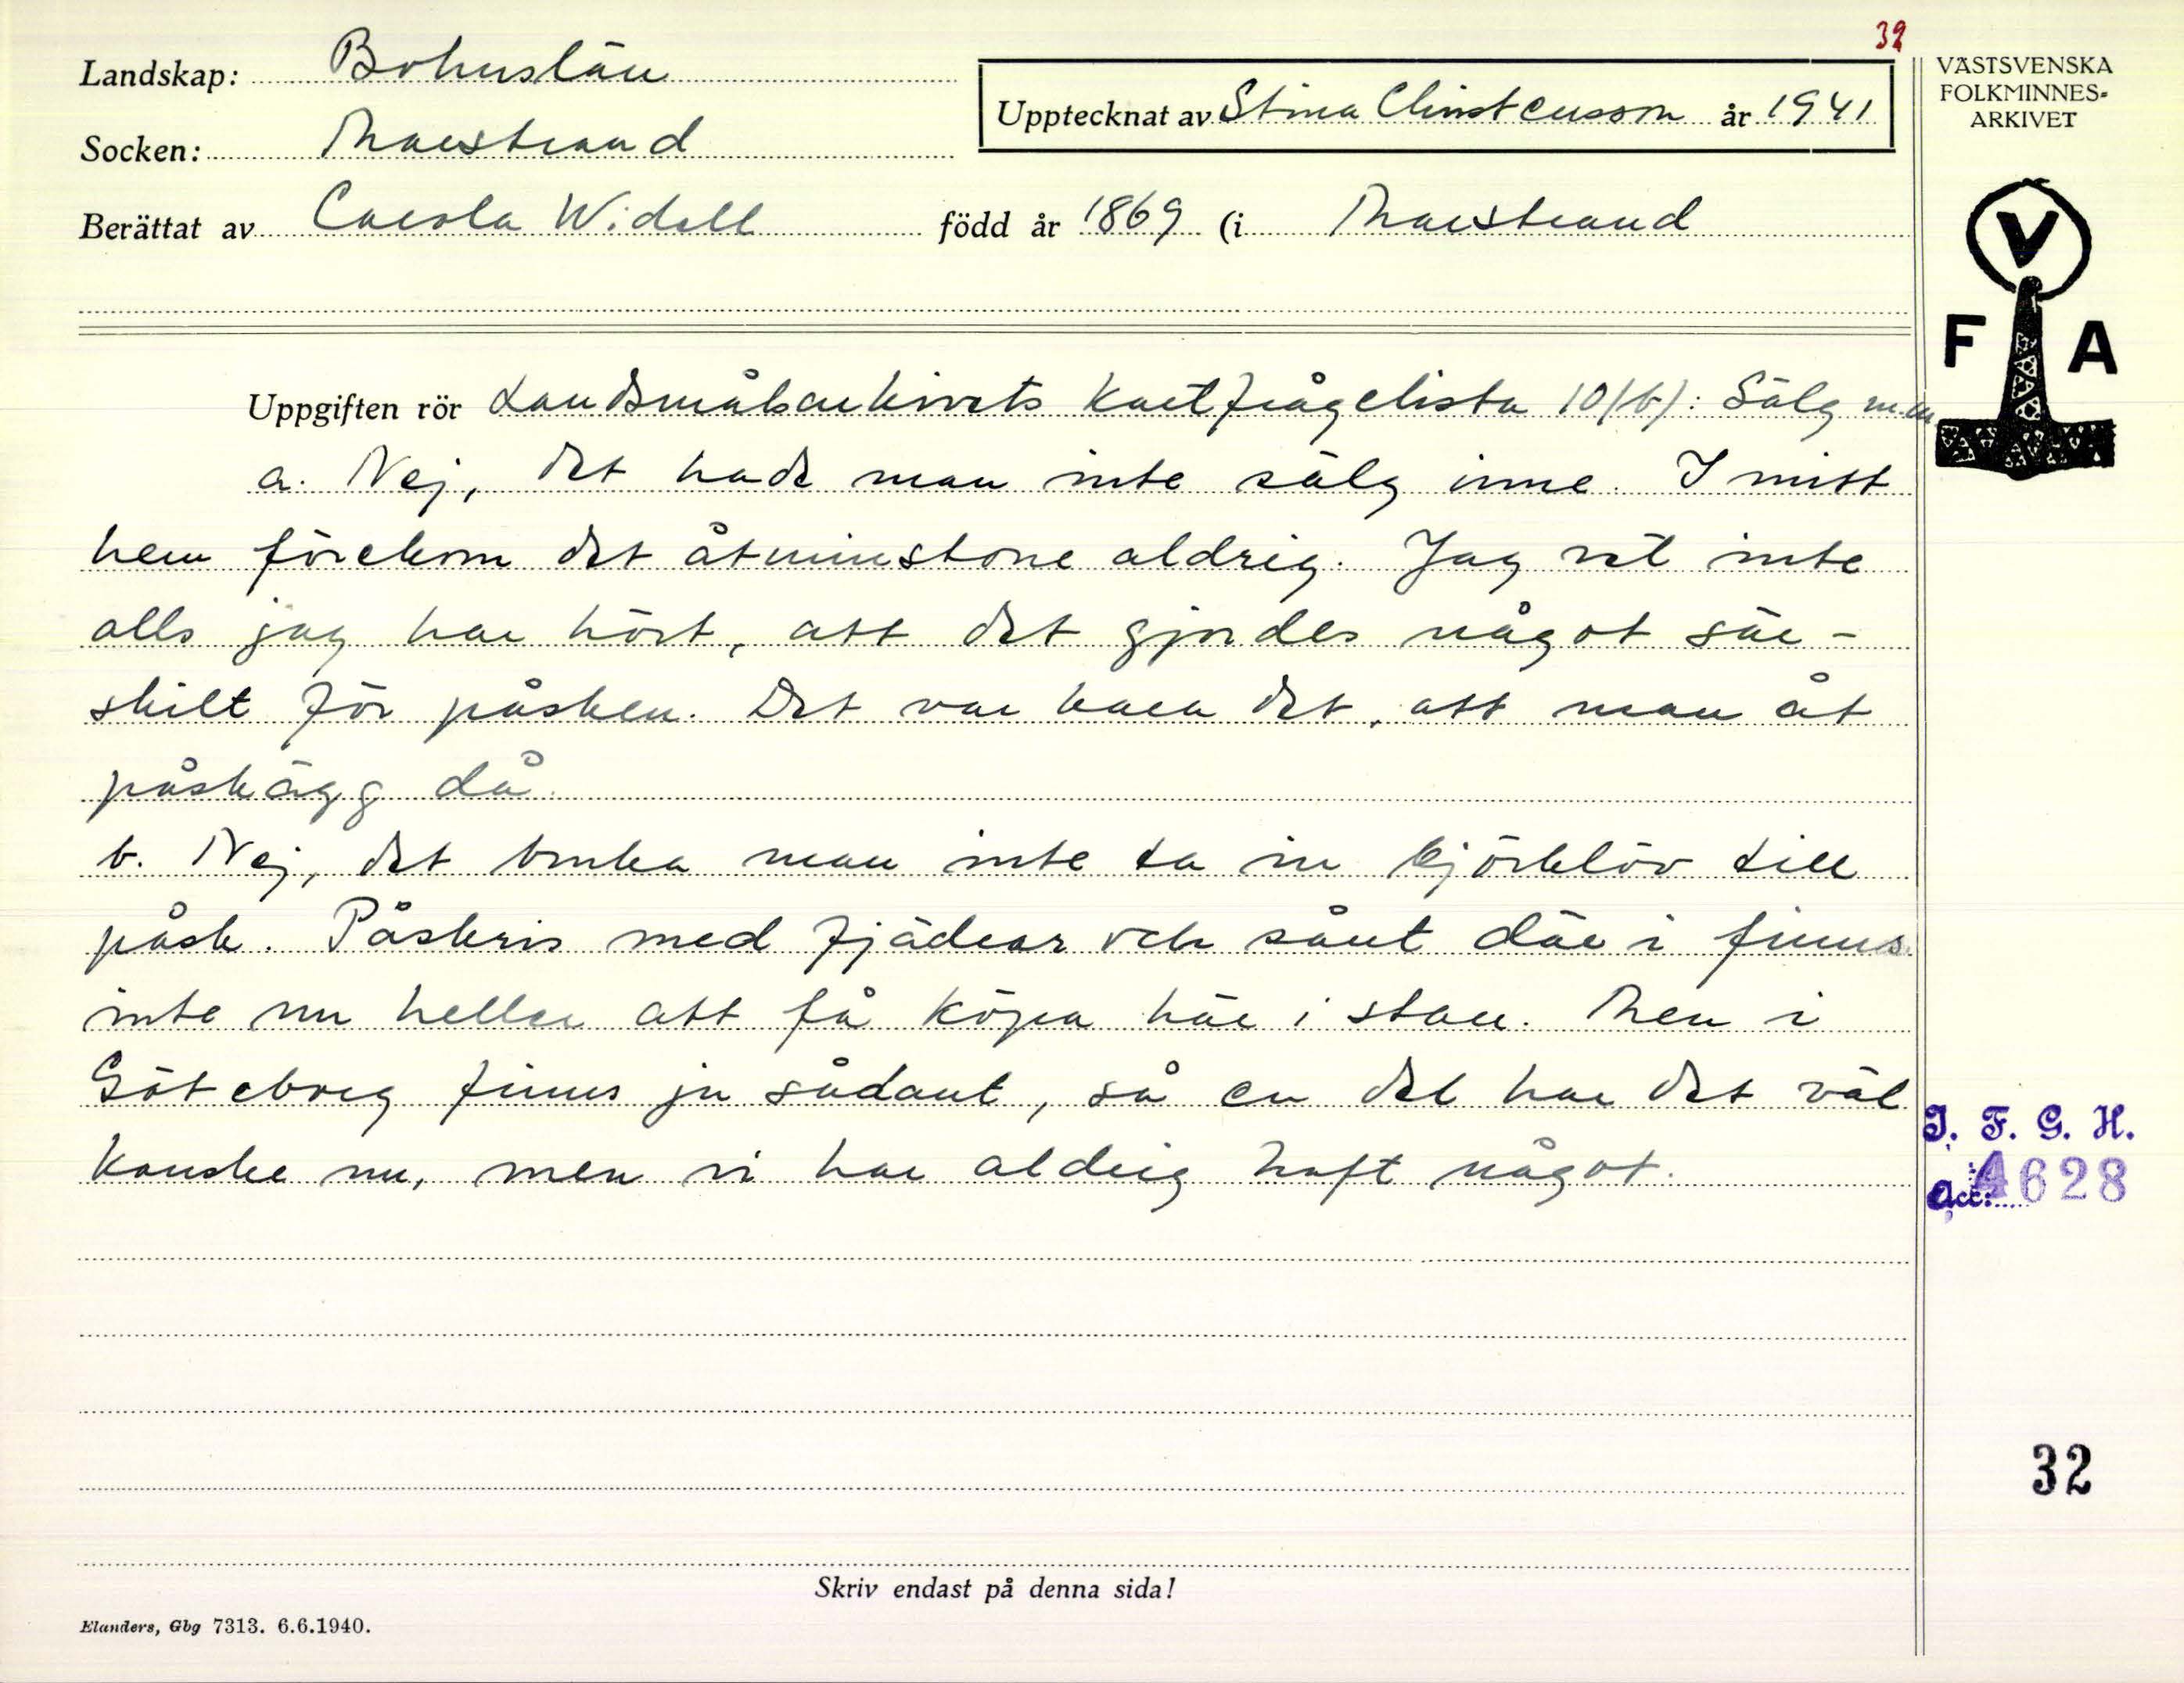 32
Landskap: Bohuslän
Upptecknat av Stina Christensson år 1941
Socken: Marstrand
Berättat av Carola Widell född år 1869 (i Marstrand
VÄSTSVENSKA
FOLKMINNES-
ARKIVET
V
F A
Uppgiften rör Landsmålsarkivets kortfrågelista 10(b): Sälg m.m.
a. Nej, det hade man inte sälg inne. I mitt
hem förekom det åtminstone aldrig. Jag vet inte
alls jag har hört, att det gjordes något sär-
skilt för påsken. Det var bara det, att man åt
påskägg då.
b. Nej, det bruka man inte ta in björklöv till
påsk. Påskris med fjädrar och sånt där i finns
inte nu heller att få köpa här i stan. Men i
Göteborg finns ju sådant, så en del har det väl
kanske nu, men vi har aldrig haft något.
I. F. G. H.
Acc: 4628
32
Skriv endast på denna sida!
Elanders, Gbg 7313. 6.6.1940.